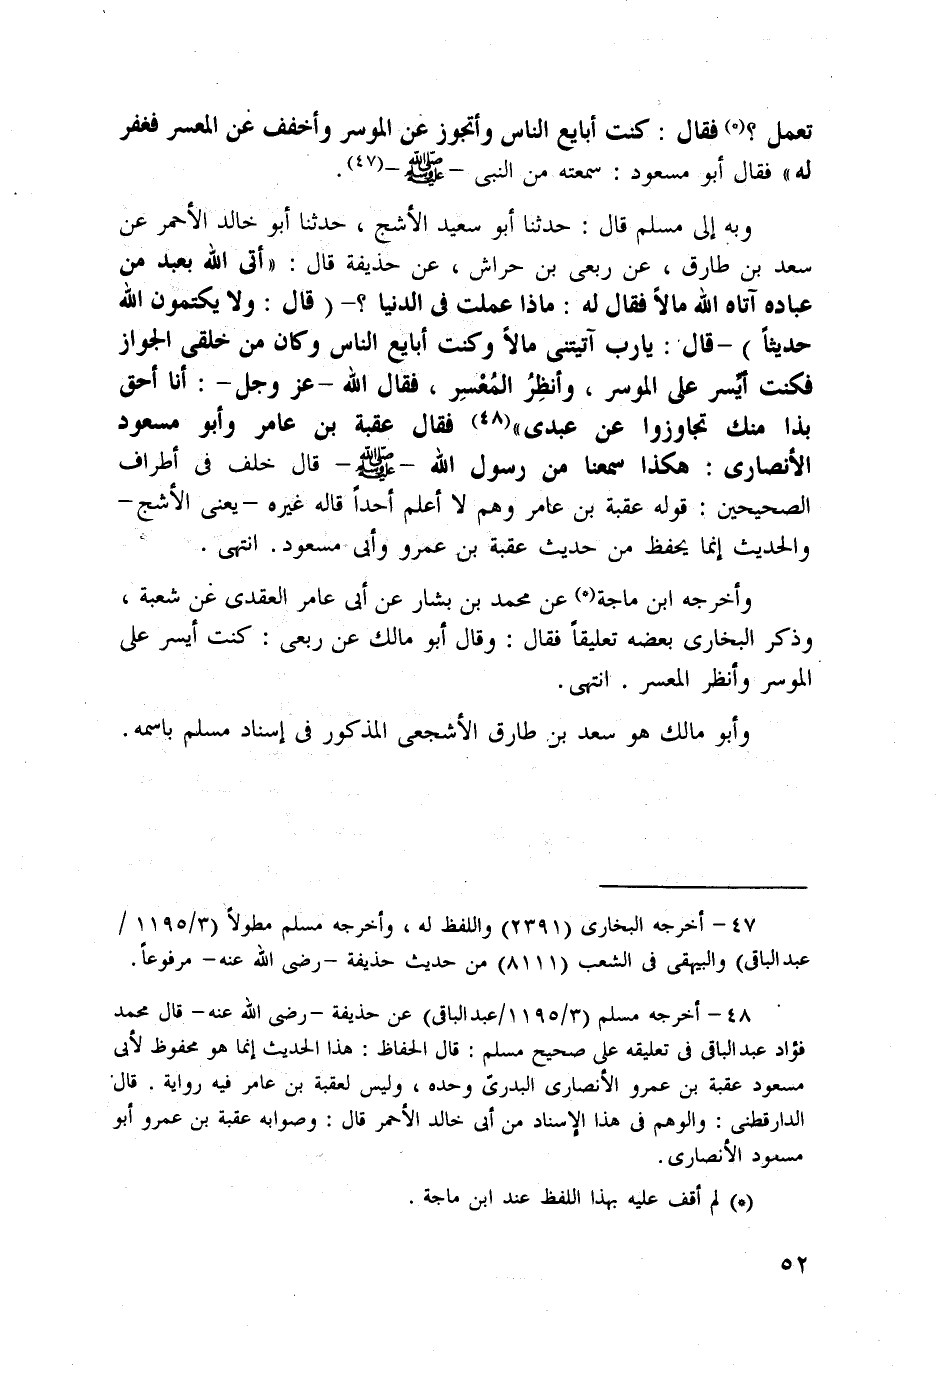 تعمل ؟(٥) فقال : كنت أبايع الناس وأتجوز عن الموسر وأخفف عن المعسر فغفر
له» فقال أبو مسعود : سمعته من النبى -ﷺ-(٤٧).
وبه إلى مسلم قال : حدثنا أبو سعيد الأشج ، حدثنا أبو خالد الأحمر عن
سعد بن طارق ، عن ربعى بن حراش ، عن حذيفة قال : «أتى الله بعبد من
عباده آتاه الله مالاً فقال له : ماذا عملت فى الدنيا ؟- ( قال : ولا يكتمون الله
حديثاً ) -قال : يارب آتيتنى مالاً وكنت أبايع الناس وكان من خلقى الجواز
فكنت أيسر على الموسر ، وأنظِرُ المُعْسِر ، فقال الله -عز وجل- : أنا أحق
بذا منك تجاوزوا عن عبدى»(٤٨) فقال عقبة بن عامر وأبو مسعود
الأنصارى : هكذا سمعنا من رسول الله -ﷺ- قال خلف فى أطراف
الصحيحين : قوله عقبة بن عامر وهم لا أعلم أحداً قاله غيره -يعنى الأشج-
والحديث إنما يحفظ من حديث عقبة بن عمرو وأبى مسعود. انتهى .
وأخرجه ابن ماجة(٥) عن محمد بن بشار عن أبى عامر العقدى عن شعبة ،
وذكر البخارى بعضه تعليقاً فقال : وقال أبو مالك عن ربعى : كنت أيسر على
الموسر وأنظر المعسر . انتهى.
وأبو مالك هو سعد بن طارق الأشجعى المذكور فى إسناد مسلم باسمه.
٤٧- أخرجه البخارى (٢٣٩١) واللفظ له ، وأخرجه مسلم مطولاً (١١٩٥/٣ /
عبدالباقى) والبيهقى فى الشعب (٨١١١) من حديث حذيفة -رضى الله عنه- مرفوعاً.
٤٨- أخرجه مسلم (١١٩٥/٣/عبدالباقى) عن حذيفة -رضى الله عنه- قال محمد
فؤاد عبدالباقى فى تعليقه على صحيح مسلم : قال الحفاظ : هذا الحديث إنما هو محفوظ لأبى
مسعود عقبة بن عمرو الأنصارى البدرىّ وحده ، وليس لعقبة بن عامر فيه رواية . قال
الدارقطنى : والوهم فى هذا الإسناد من أبى خالد الأحمر قال : وصوابه عقبة بن عمرو أبو
مسعود الأنصارى.
(*) لم أقف عليه بهذا اللفظ عند ابن ماجة .
٥٢